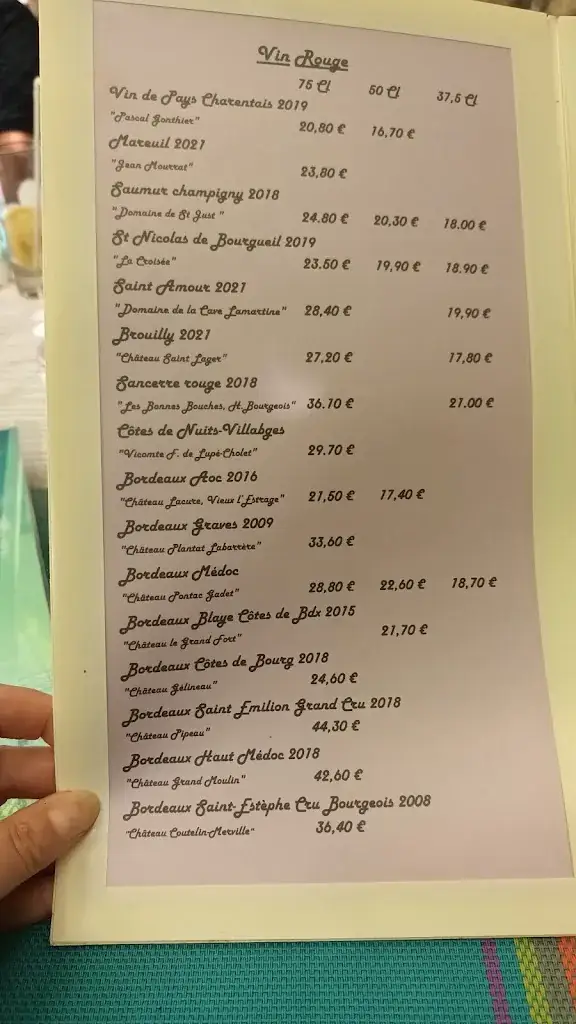 Vin Rouge
75 Cl 50 Cl 37,5 Cl
Vin de Pays Charentais 2019
"Pascal Gonthier" 20,80 € 16,70 €
Mareuil 2021
"Jean Mourrat" 23,80 €
Saumur champigny 2018
"Domaine de St Just " 24.80 € 20,30 € 18.00 €
St Nicolas de Bourgueil 2019
"La Croisée" 23.50 € 19,90 € 18.90 €
Saint Amour 2021
"Domaine de la Cave Lamartine" 28,40 € 19,90 €
Brouilly 2021
"Château Saint Lager" 27,20 € 17,80 €
Sancerre rouge 2018
"Les Bonnes Bouches, H. Bourgeois" 36.10 € 21.00 €
Côtes de Nuits-Villabges
"Vicomte F. de Lupé-Cholet" 29.70 €
Bordeaux Aoc 2016
"Château Lacure, Vieux l'Estrage" 21,50 € 17,40 €
Bordeaux Graves 2009
"Château Plantat Labarrère" 33,60 €
Bordeaux Médoc
"Château Pontac Gadet" 28,80 € 22,60 € 18,70 €
Bordeaux Blaye Côtes de Bdx 2015
"Château le Grand Fort" 21,70 €
Bordeaux Côtes de Bourg 2018
"Château Gélineau" 24,60 €
Bordeaux Saint Emilion Grand Cru 2018
"Château Pipeau" 44,30 €
Bordeaux Haut Médoc 2018
"Château Grand Moulin" 42,60 €
Bordeaux Saint-Estèphe Cru Bourgeois 2008
"Château Coutelin-Merville" 36,40 €